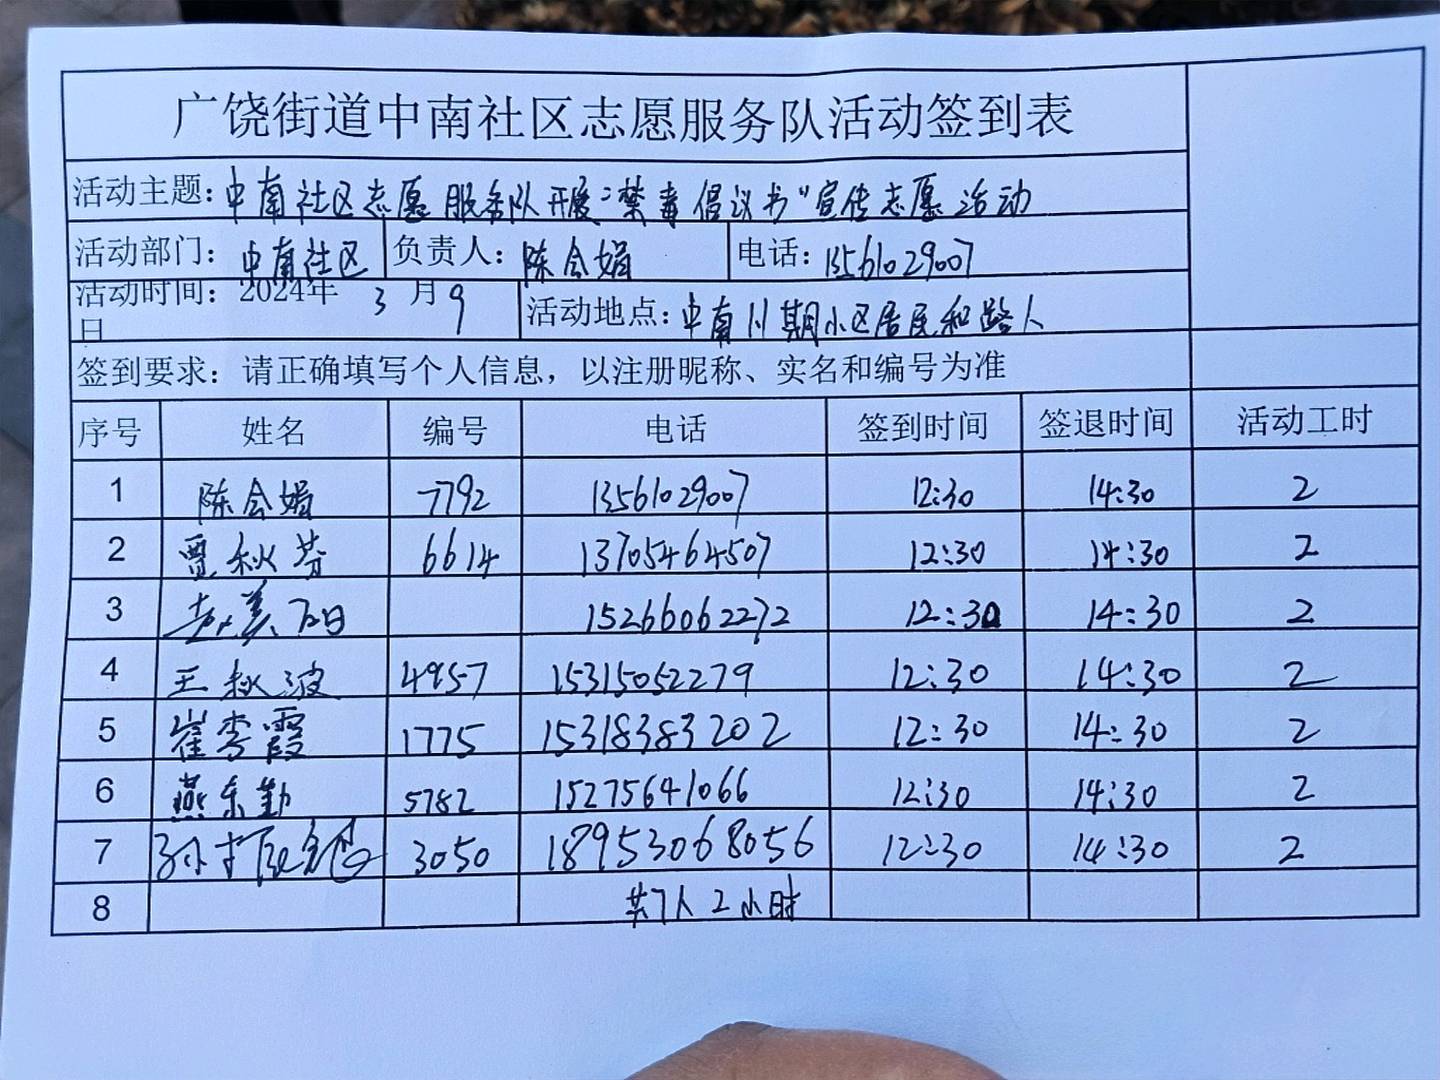 广饶街道中南社区志愿服务队活动签到表
活动主题：中南社区志愿服务队开展“禁毒倡议书”宣传志愿活动
活动部门：中南社区 负责人：陈会娟 电话：13561029007
活动时间：2024年 3 月 9
日
活动地点：中南川期小区居民和路人
签到要求：请正确填写个人信息，以注册昵称、实名和编号为准
序号 姓名 编号 电话 签到时间 签退时间 活动工时
1 陈会娟 7792 13561029007 12:30 14:30 2
2 贾秋芬 6614 13705464507 12:30 14:30 2
3 15266062272 12:30 14:30 2
4 王秋波 4957 15315052279 12:30 14:30 2
5 崔李霞 1775 15318383202 12:30 14:30 2
6 燕东勤 5782 15275641066 12:30 14:30 2
7 3050 18953068056 12:30 14:30 2
8 共7人2小时